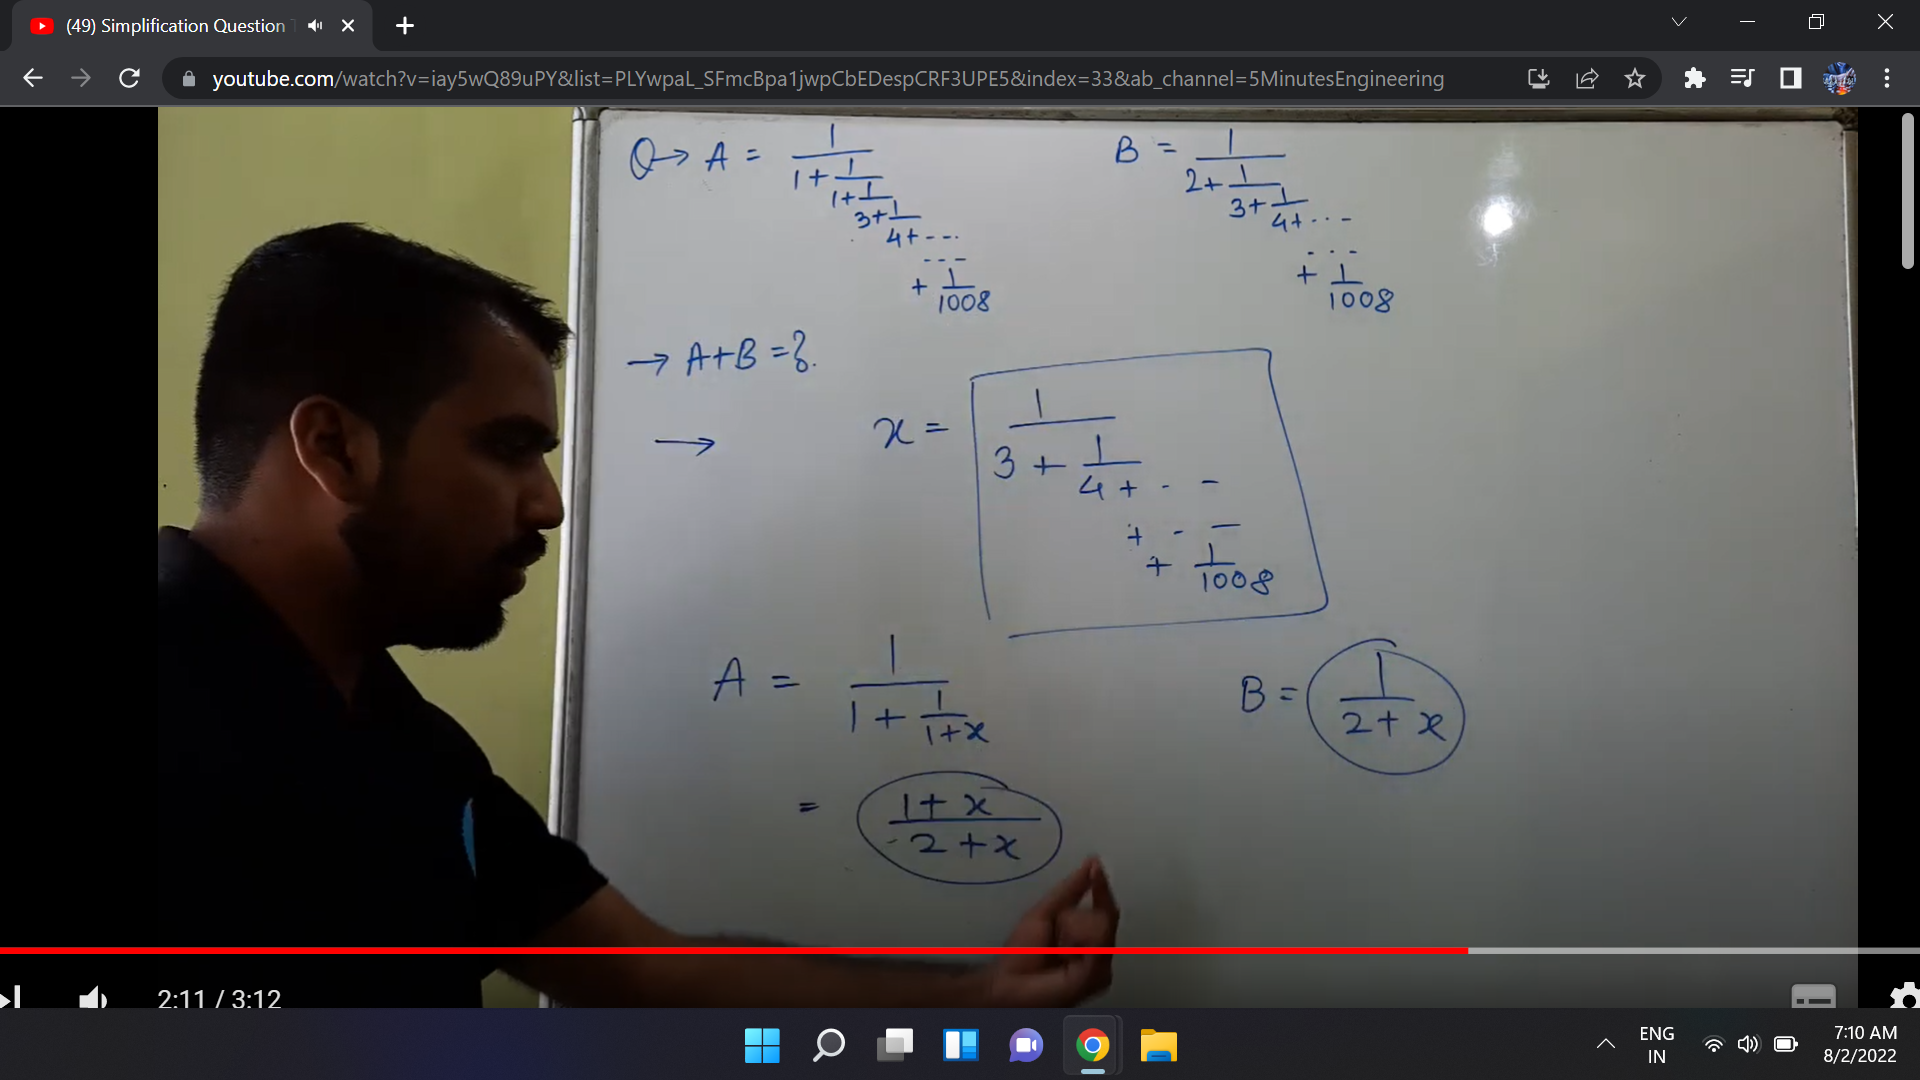 (49) Simplification Question T
youtube.com/watch?v=iay5wQ89uPY&list=PLYwpaL_SFmcBpa1jwpCbEDespCRF3UPE5&index=33&ab_channel=5MinutesEngineering
Q→ A = 1/(1+1/(1+1/(3+1/(4+--- --- + 1/1008
B = 1/(2+1/(3+1/(4+--- --- + 1/1008
→ A+B =?.
→ x = 1/(3+1/(4+ - - + - - + 1/1008
A = 1/(1+1/(1+x
B = 1/(2+x
= (1+x)/(2+x)
2:11 / 3:12
ENG
IN
7:10 AM
8/2/2022